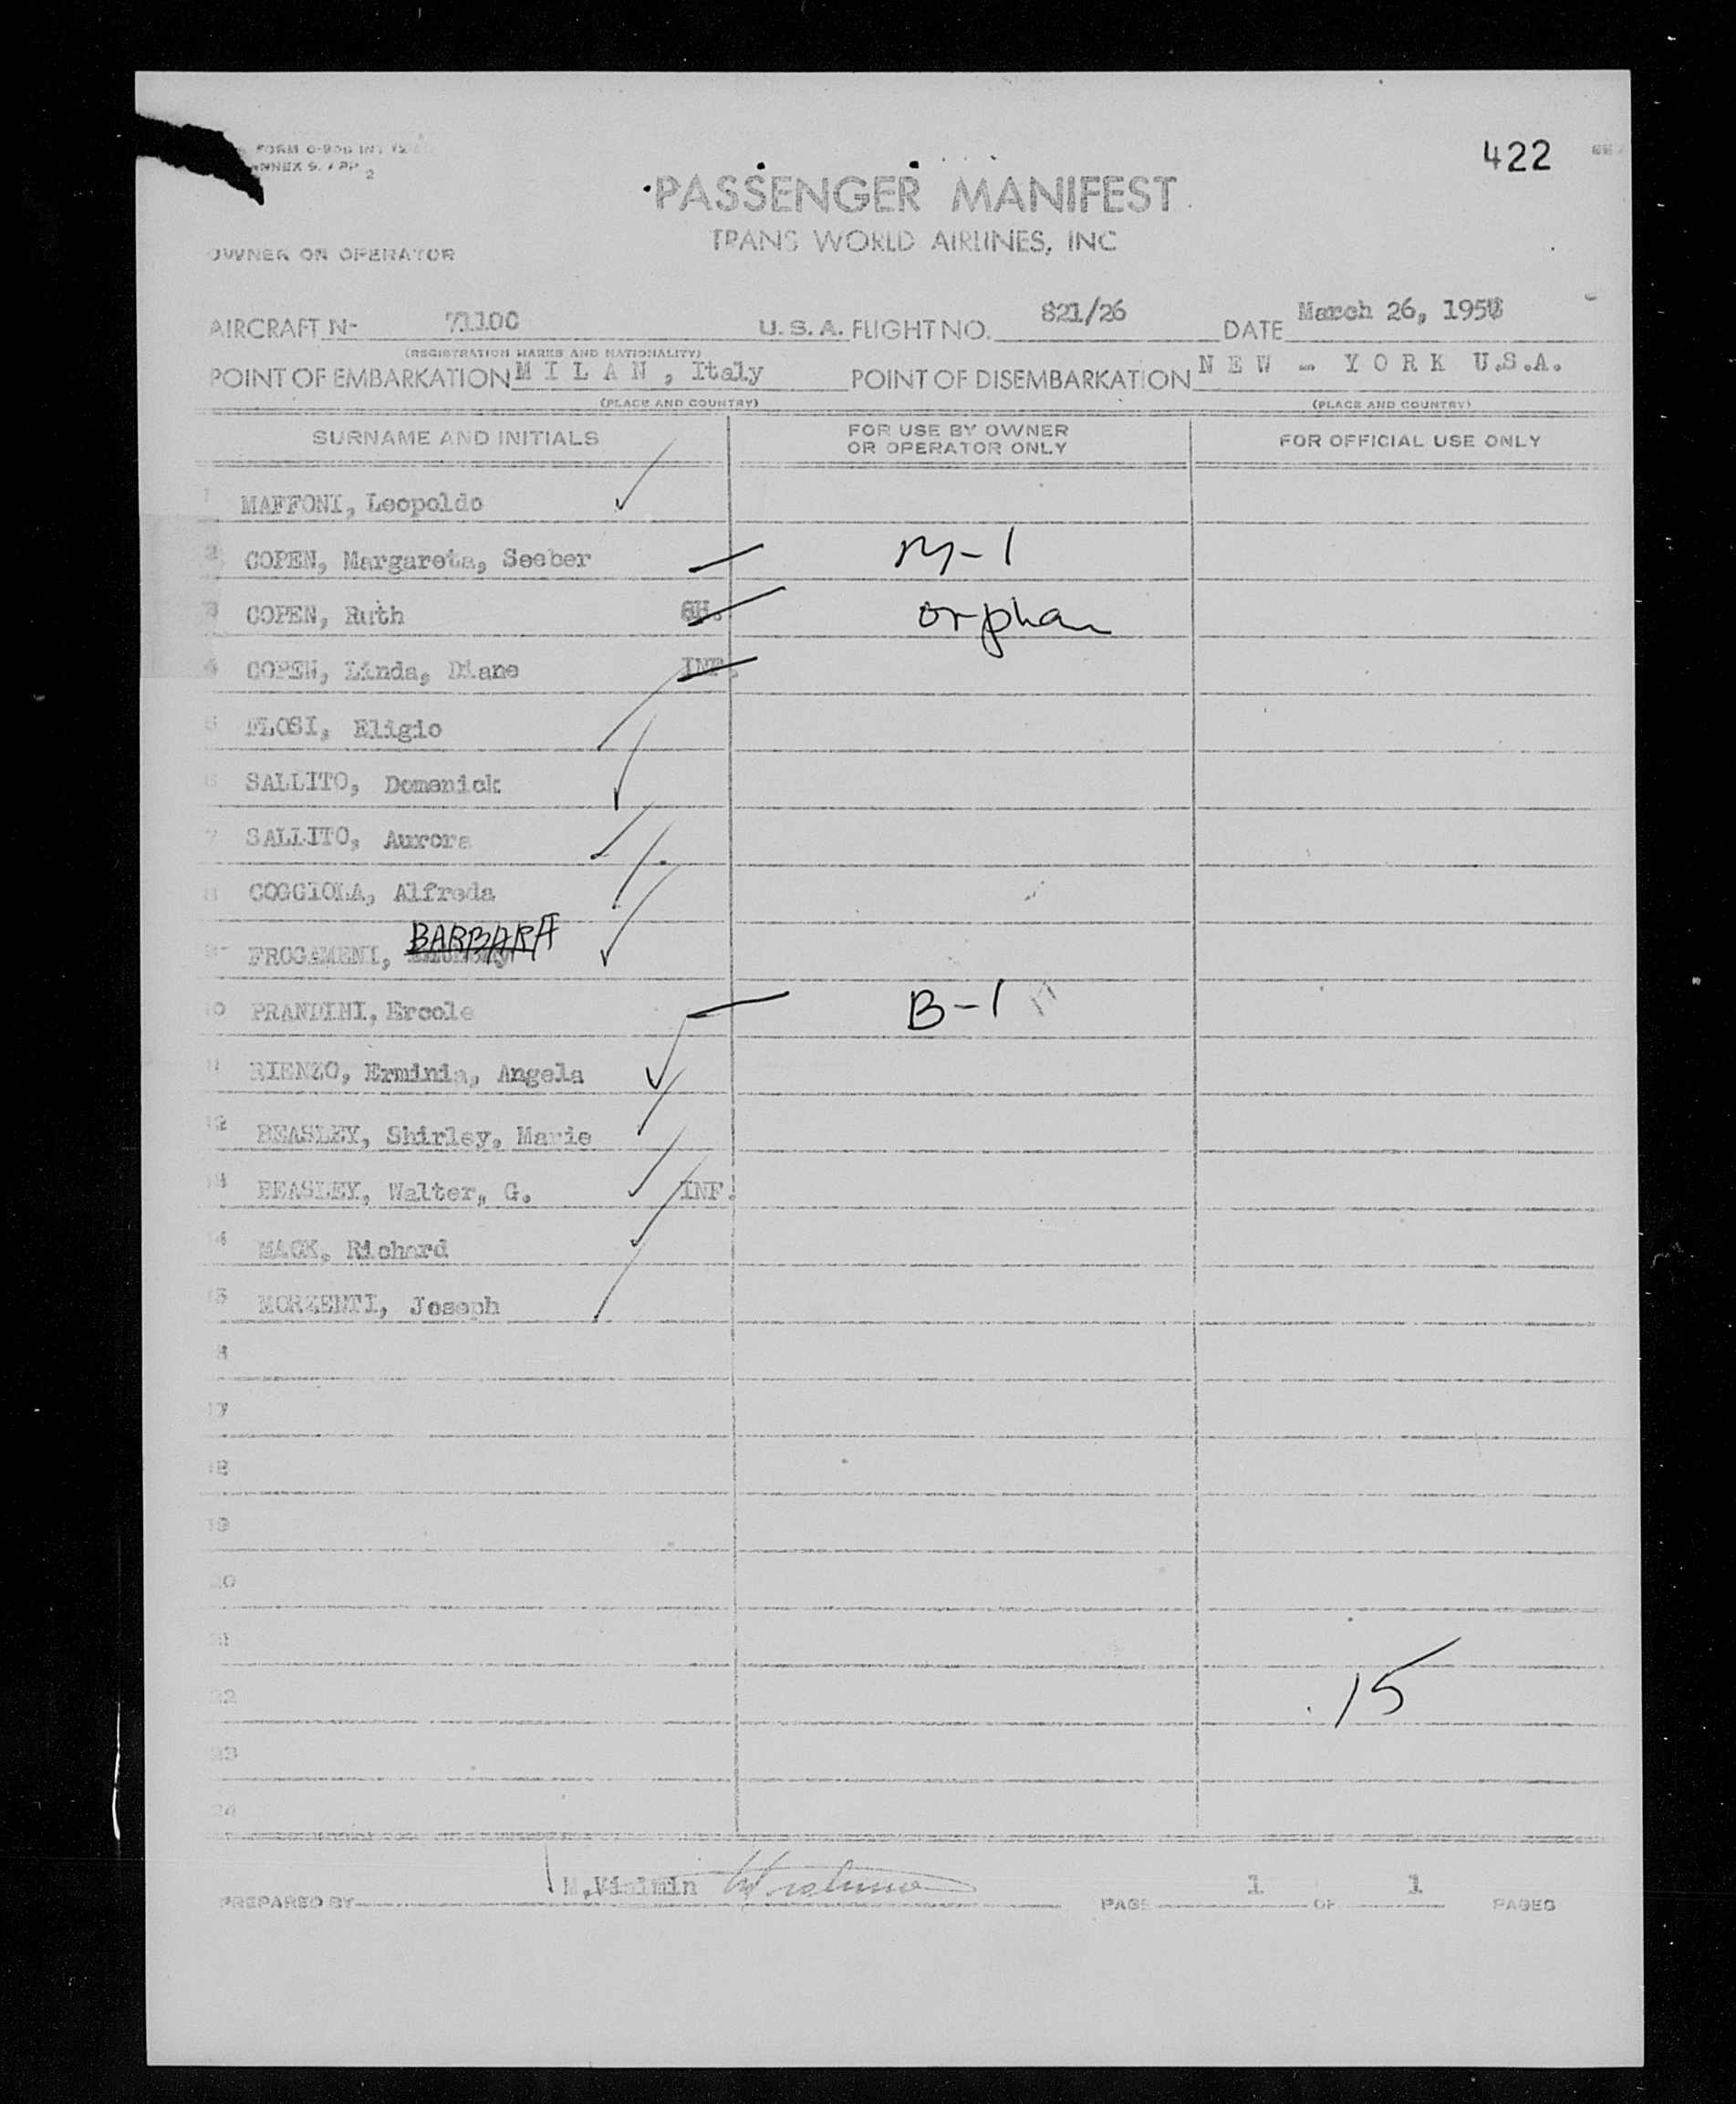 FORM
ANNEX 9.
2
422
PASSENGER MANIFEST
TRANS WORLD AIRLINES, INC
OWNER OR OPERATOR
AIRCRAFT N- 71100 U.S.A. FLIGHT NO. 821/26 DATE March 26, 195
(REGISTRATION MARKS AND NATIONALITY)
POINT OF EMBARKATION M I L A N , Italy POINT OF DISEMBARKATION N E W - Y O R K U.S.A.
(PLACE AND COUNTRY) (PLACE AND COUNTRY)
SURNAME AND INITIALS FOR USE BY OWNER OR OPERATOR ONLY FOR OFFICIAL USE ONLY
1 MAFFONI, Leopoldo
2 COPEN, Margareta, Seeber M-1
3 COPEN, Ruth CH. orphan
4 COPEN, Linda, Diane INF.
5 FLOSI, Eligio
6 SALLITO, Domenick
7 SALLITO, Aurora
8 COGGIOLA, Alfreda
BARBARA
9 FROGAMENI,
10 PRANDINI, Ercole B-1
11 RIENZO, Erminia, Angela
12 BEASLEY, Shirley, Marie
13 BEASLEY, Walter, G. INF.
14 MACK, Richard
15 MORZENTI, Joseph
16
17
18
19
20
21
22 15
23
24
PREPARED BY M.Vialmin PAGE 1 OF 1 PAGES